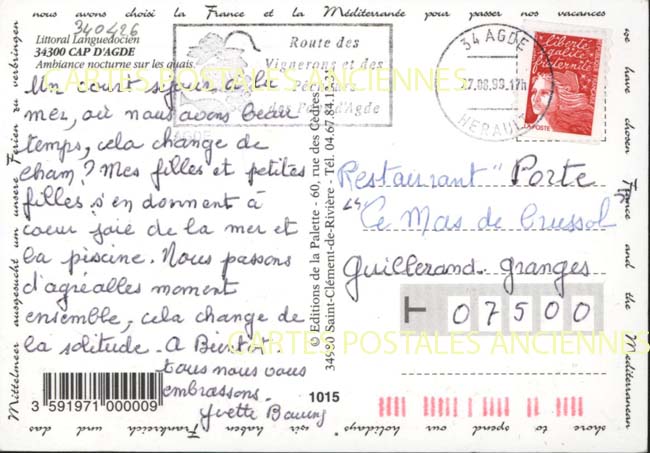 nous avons choisi la France et la Méditerranée pour passer nos vacances
we have chosen France and the Mediterranean
to spend our holidays
wir haben Frankreich und das
Mittelmeer ausgesucht um unsere Ferien zu verbringen
340426
Littoral Languedocien
34300 CAP D'AGDE
Ambiance nocturne sur les quais
Route des
Vignerons et des
Pêcheurs
des Pays d'Agde
AGDE
34 AGDE
27.08.99.17h
HERAULT
liberté
égalité
fraternité
LA POSTE
CARTES POSTALES ANCIENNES
Un court séjour à la
mer, où nous avons beau
temps, cela change de
cham? Mes filles et petites
filles s'en donnent à
coeur joie de la mer et
la piscine. Nous passons
d'agréables moment
ensemble, cela change de
la solitude. A Bientôt.
tous nous vous
embrassons.
Yvette
© Editions de la Palette - 60, rue des Cèdres
34980 Saint-Clément-de-Rivière - Tél. 04.67.84.13
Restaurant " Porte
Le Mas de Crussol "
Guillerand-Granges
T 07500
CARTES POSTALES ANCIENNES
3 591971 000009
1015